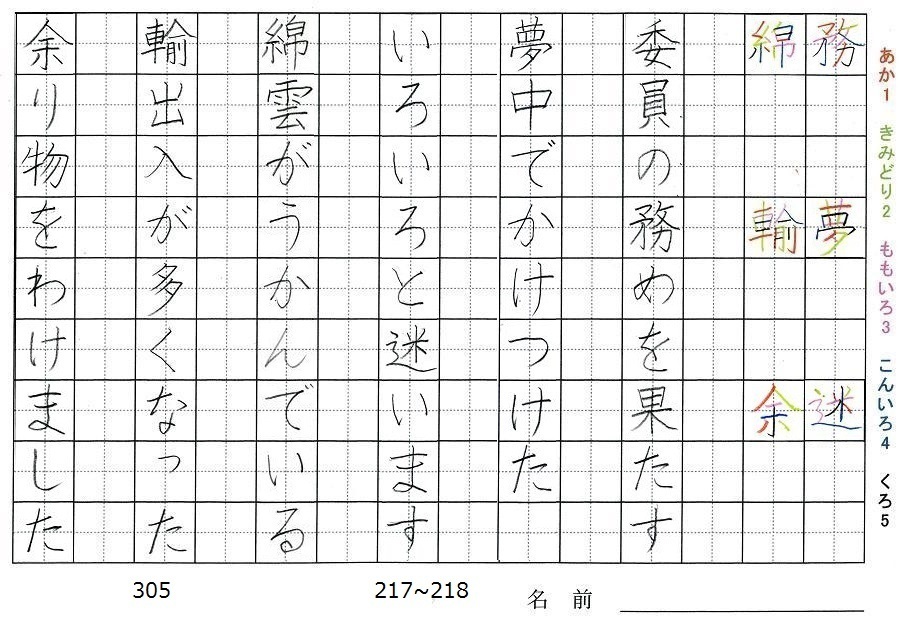 あか1 きみどり2 ももいろ3 こんいろ4 くろ5
務 夢 迷
綿 輸 余
委員の務めを果たす
夢中でかけつけた
いろいろと迷います
綿雲がうかんでいる
輸出入が多くなった
余り物をわけました
305
217~218
名前